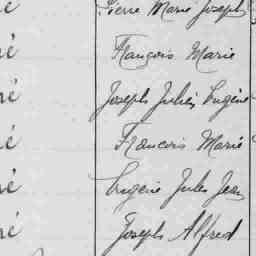 é Pierre Marie Joseph
é François Marie
é Joseph Julien Eugène
é François Marie
é Eugène Jules Jean
é Joseph Alfred